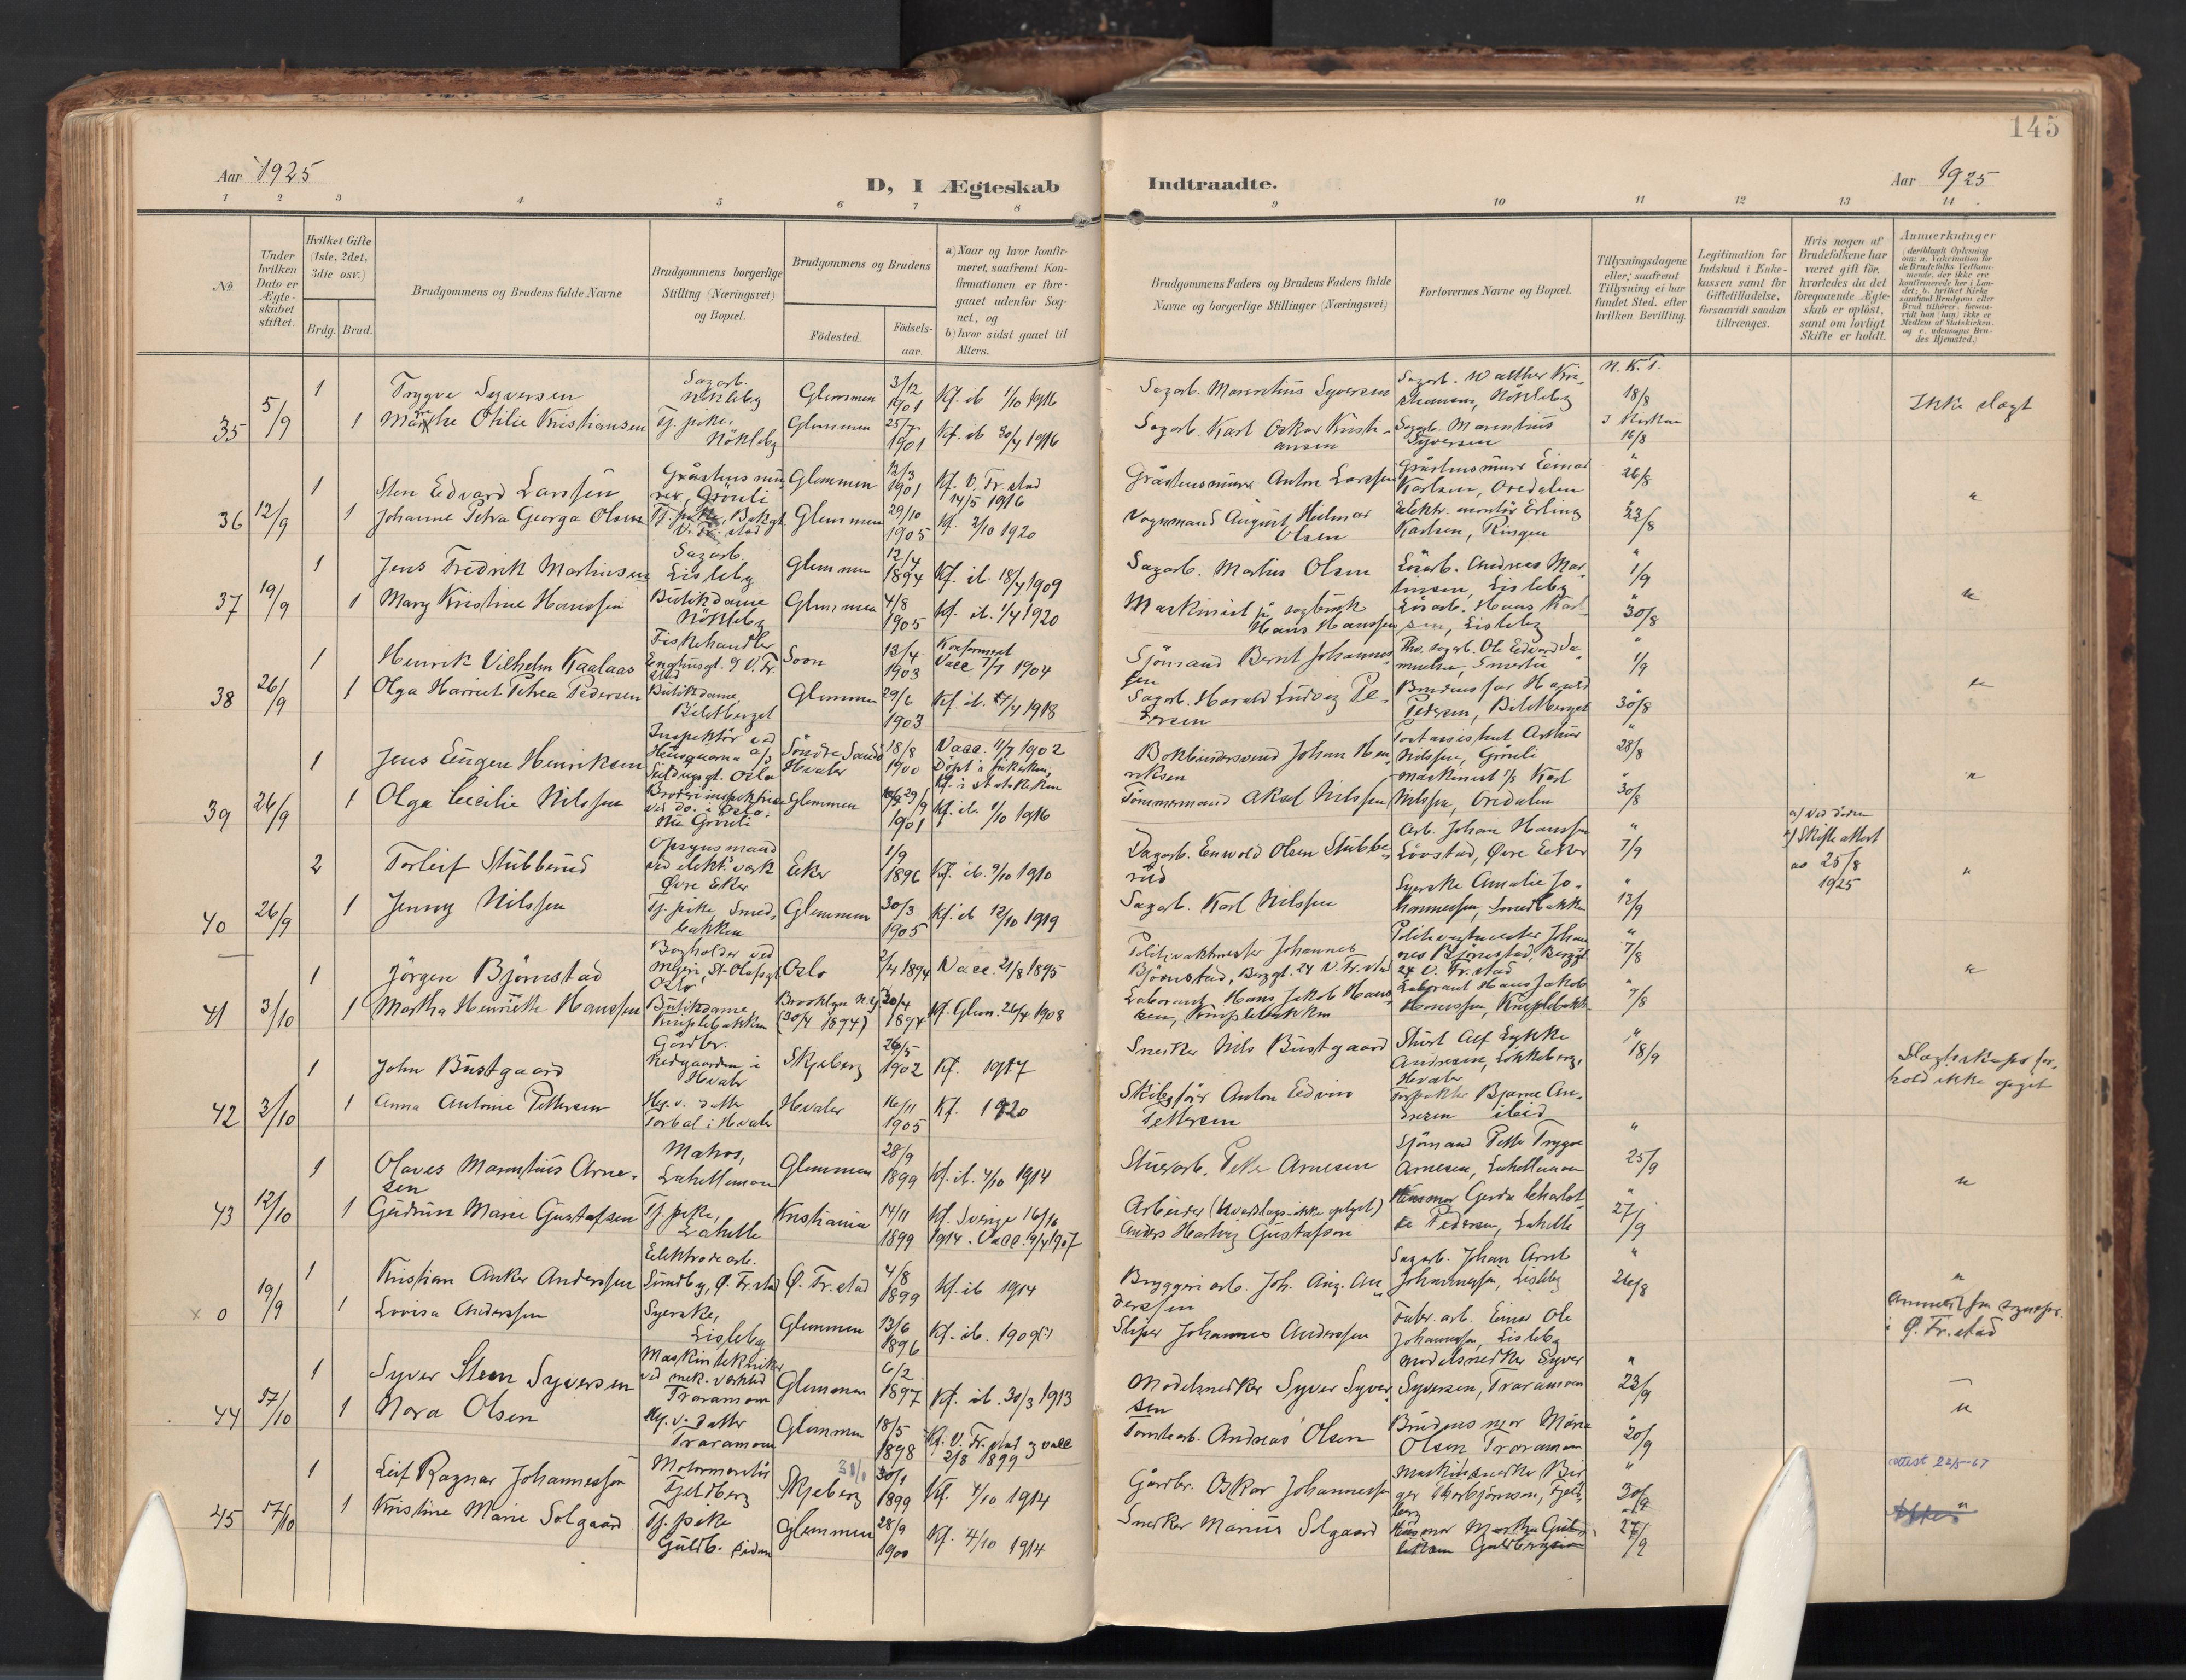 145
Aar 1925
D, I Ægteskab
Indtraadte.
Aar 1925
1 2 3 4 5 6 7 8
9 10 11 12 13 14
No
Under hvilken Dato er Ægteskabet stiftet.
Hvilket Gifte (1ste, 2det, 3die osv.)
Brdg. Brud.
Brudgommens og Brudens fulde Navne
Brudgommens borgerlige Stilling (Næringsvei) og Bopæl.
Brudgommens og Brudens
Födested.
Födsels-aar.
a) Naar og hvor konfirmeret, saafremt Konfirmationen er foregaaet udenfor Sognet, og
b) hvor sidst gaaet til Alters.
Brudgommens Faders og Brudens Faders fulde Navne og borgerlige Stillinger (Næringsvei)
Forlovernes Navne og Bopæl.
Tillysningsdagene eller, saafremt Tillysning ei har fundet Sted, efter hvilken Bevilling.
Legitimation for Indskud i Enkekassen samt for Giftetilladelse, forsaavidt saadan tiltrænges.
Hvis nogen af Brudefolkene har været gift før, hvorledes da det foregaaende Ægteskab er oplöst, samt om lovligt Skifte er holdt.
Anmærkninger
35 5/9
1 Trygve Syversen Sagarb. Nökleby Glemmen 3/12 1901 Kf. ib 1/10 1916
Sagarb. Marentius Syversen Sagarb. Walther Kristiansen, Nökleby N. K. T. 18/8 Ikke slegt
1 Marthe Otilie Kristiansen Tj. pike, Nökleby Glemmen 25/7 1901 Kf. ib 30/4 1916
Sagarb. Karl Oskar Kristiansen Sagarb. Marentius Syversen I Kirken 16/8
36 12/9
1 Sten Edvard Larssen Gråstensmürer, Grönli Glemmen 12/3 1901 Kf. V. Fr.stad 14/5 1916
Gråstensmürer Anton Larssen Gråstensmürer Einar Karlsen, Oredalen " 26/8 "
1 Johanne Petra Georga Olsen Tj. pike, Bakgt V. Fr.stad Glemmen 29/10 1905 Kf. 3/10 1920
Vognmand August Hilmar Olsen Elektr. montör Erling Karlsen, Ringen " 23/8
37 19/9
1 Jens Fredrik Martinsen Sagarb. Lisleby Glemmen 12/4 1894 Kf. ib. 18/4 1909
Sagarb. Martin Olsen Lösarb. Andreas Martinsen, Lisleby " 1/9 "
1 Mary Kristine Hanssen Bütikdame Nökleby Glemmen 4/8 1905 Kf. ib. 1/4 1920
Maskinist på sagbruk Hans Hanssen Lösarb. Hans Karlsen, Lisleby " 30/8
38 26/9
1 Henrik Vilhelm Kaalaas Fiskehandler Enghusgt. 9 V. Fr.stad Soon 13/4 1903 Konfirmert Vacc 7/7 1904
Sjömand Bernt Johannessen Fho. sagarb. Ole Edvard Samuelsen, Smertu " 1/9 "
1 Olga Harriet Petrea Pedersen Bütikdame, Bildtberget Glemmen 29/6 1903 Kf. ib. 21/4 1918
Sagarb. Harald Ludvig Pedersen Brudens far Harald Pedersen, Bildtberget " 30/8
39 26/9
1 Jens Eugene Henriksen Inspektör ved Husqvarna A/S Seildugsgt. Oslo Söndre Sandö Hvaler 18/8 1900 Vacc. 11/7 1902 Döpt i frikirken, Kf. i statskirken
Bokbindersvend Johan Henriksen Postassistent Arthur Nilssen, Grönli " 28/8 "
1 Olga Cecilie Nilssen Broderiinspektrise ved do. i Oslo. Nu Grönli Glemmen 29/9 1901 Kf. ib. 1/10 1916
Tömmermand Aksel Nilssen Maskinist Karl Nilssen, Oredalen " 30/8
40 26/9
2 Torleif Stubberud Opsynsmand ved elektr. verk Övre Eker Eker 1/9 1896 Kf. ib. 9/10 1910
Dagarb. Enwold Olsen Stubberud Arb. Johan Hanssen Lövstad, Øvre Eeker " 7/9 a) Ved döden Skifteattest av 25/8 1925 "
1 Jenny Nilssen Tj. pike, Smedbakken Glemmen 30/3 1905 Kf. ib 12/10 1919
Sagarb. Karl Nilssen Syerske Amalie Johannessen, Smedbakken " 12/9
41 3/10
1 Jörgen Björnestad Bogholder ved Meyeri, St. Olafsgt Oslo Oslo 2/4 1894 Vacc. 21/8 1895
Politivaktmester Johannes Björnestad, Berggt. 24 V. Fr.stad Politivagtmester Johannes Björnestad, Berggt 24 V. Fr.stad " 7/8 "
1 Martha Henriette Hanssen Bütikdame Kniplebakken Brooklyn N.Y. (30/4 1894) 30/4 1894 Kf. Glem. 26/4 1908
Laborant Hans Jakob Hanssen, Kniplebakken Laborant Hans Jakob Hanssen, Kniplebakk. " 9/8
42 3/10
1 John Bustgaard Gårdbr. Nedgaarden i Hvaler Skjeberg 26/5 1902 Kf. 1917
Snekker Nils Bustgaard Stud. Alf Lykke Andresen, Lökkeberg, Hvaler " 18/9 Slægtskapsforhold ikke opgit
1 Anna Antonie Pettersen Hj. v. datter Torbal i Hvaler Hvaler 16/11 1905 Kf. 1920
Skibsförer Anton Edvin Pettersen Inspektör Bjarne Andresen ibid
43 12/10
1 Olaves Marentius Arnesen Matros, Lahellemoen Glemmen 28/9 1899 Kf. ib. 4/10 1914
Stuerarb. Petter Arnesen Sjömand Petter Trygve Arnesen, Lahellemoen " 25/9 "
1 Gudrun Marie Gustafsen Tj. pike, Lahelle Kristiania 14/11 1899 Kf. Sverige 16/10 1914. Vacc. 9/4 1907
Arbeider (hvadslags ikke oplyst) Anders Hartvig Gustafson Husmor Gerda Charlotte Pedersen, Lahelle " 27/9
x 0 19/9
1 Kristian Anker Anderssen Elektrodearb. Sundby, Ø. Fr.stad Ø. Fr.stad 4/8 1899 Kf. ib 1914
Bryggeriarb. Joh. Aug. Anderssen Sagarb. Johan Arnt Johannessen, Lisleby " 26/8 "
1 Lovisa Anderssen Syerske, Lisleby Glemmen 13/6 1896 Kf. ib. 1909(?)
Sliper Johannes Anderssen Fabr. arb. Einar Ole Johannessen, Lisleby Anmeldt fra sognepr. i Ø. Fr.stad
44 17/10
1 Syver Steen Syversen Maskintekniker ved mek. verksted Traramoen Glemmen 6/2 1897 Kf. ib. 30/3 1913
Modelsnedker Syver Syversen Modelsnedker Syver Syversen, Traramoen " 23/9 "
1 Nora Olsen Hj. v. datter Traramoen Glemmen 18/5 1898 Kf. V. Fr.stad og vacc 2/8 1899
Tomtearb. Andreas Olsen Brudens mor Maria Olsen Traramoen " 20/9
45 17/10
1 Leif Ragnar Johannessen Motormontör Fjeldberg Skjeberg 30/1 30/1 1899 Kf. 4/10 1914
Gårdbr. Oskar Johannessen Maskinsnedker Birger Thorbjörnsen, Fjellberg " 30/9 Attest 22/5-67
1 Kristine Marie Solgaard Tj. pike Guldb. siden Glemmen 28/9 1900 Kf. 4/10 1914
Snekker Marius Solgaard Husmor Martha 27/9 "